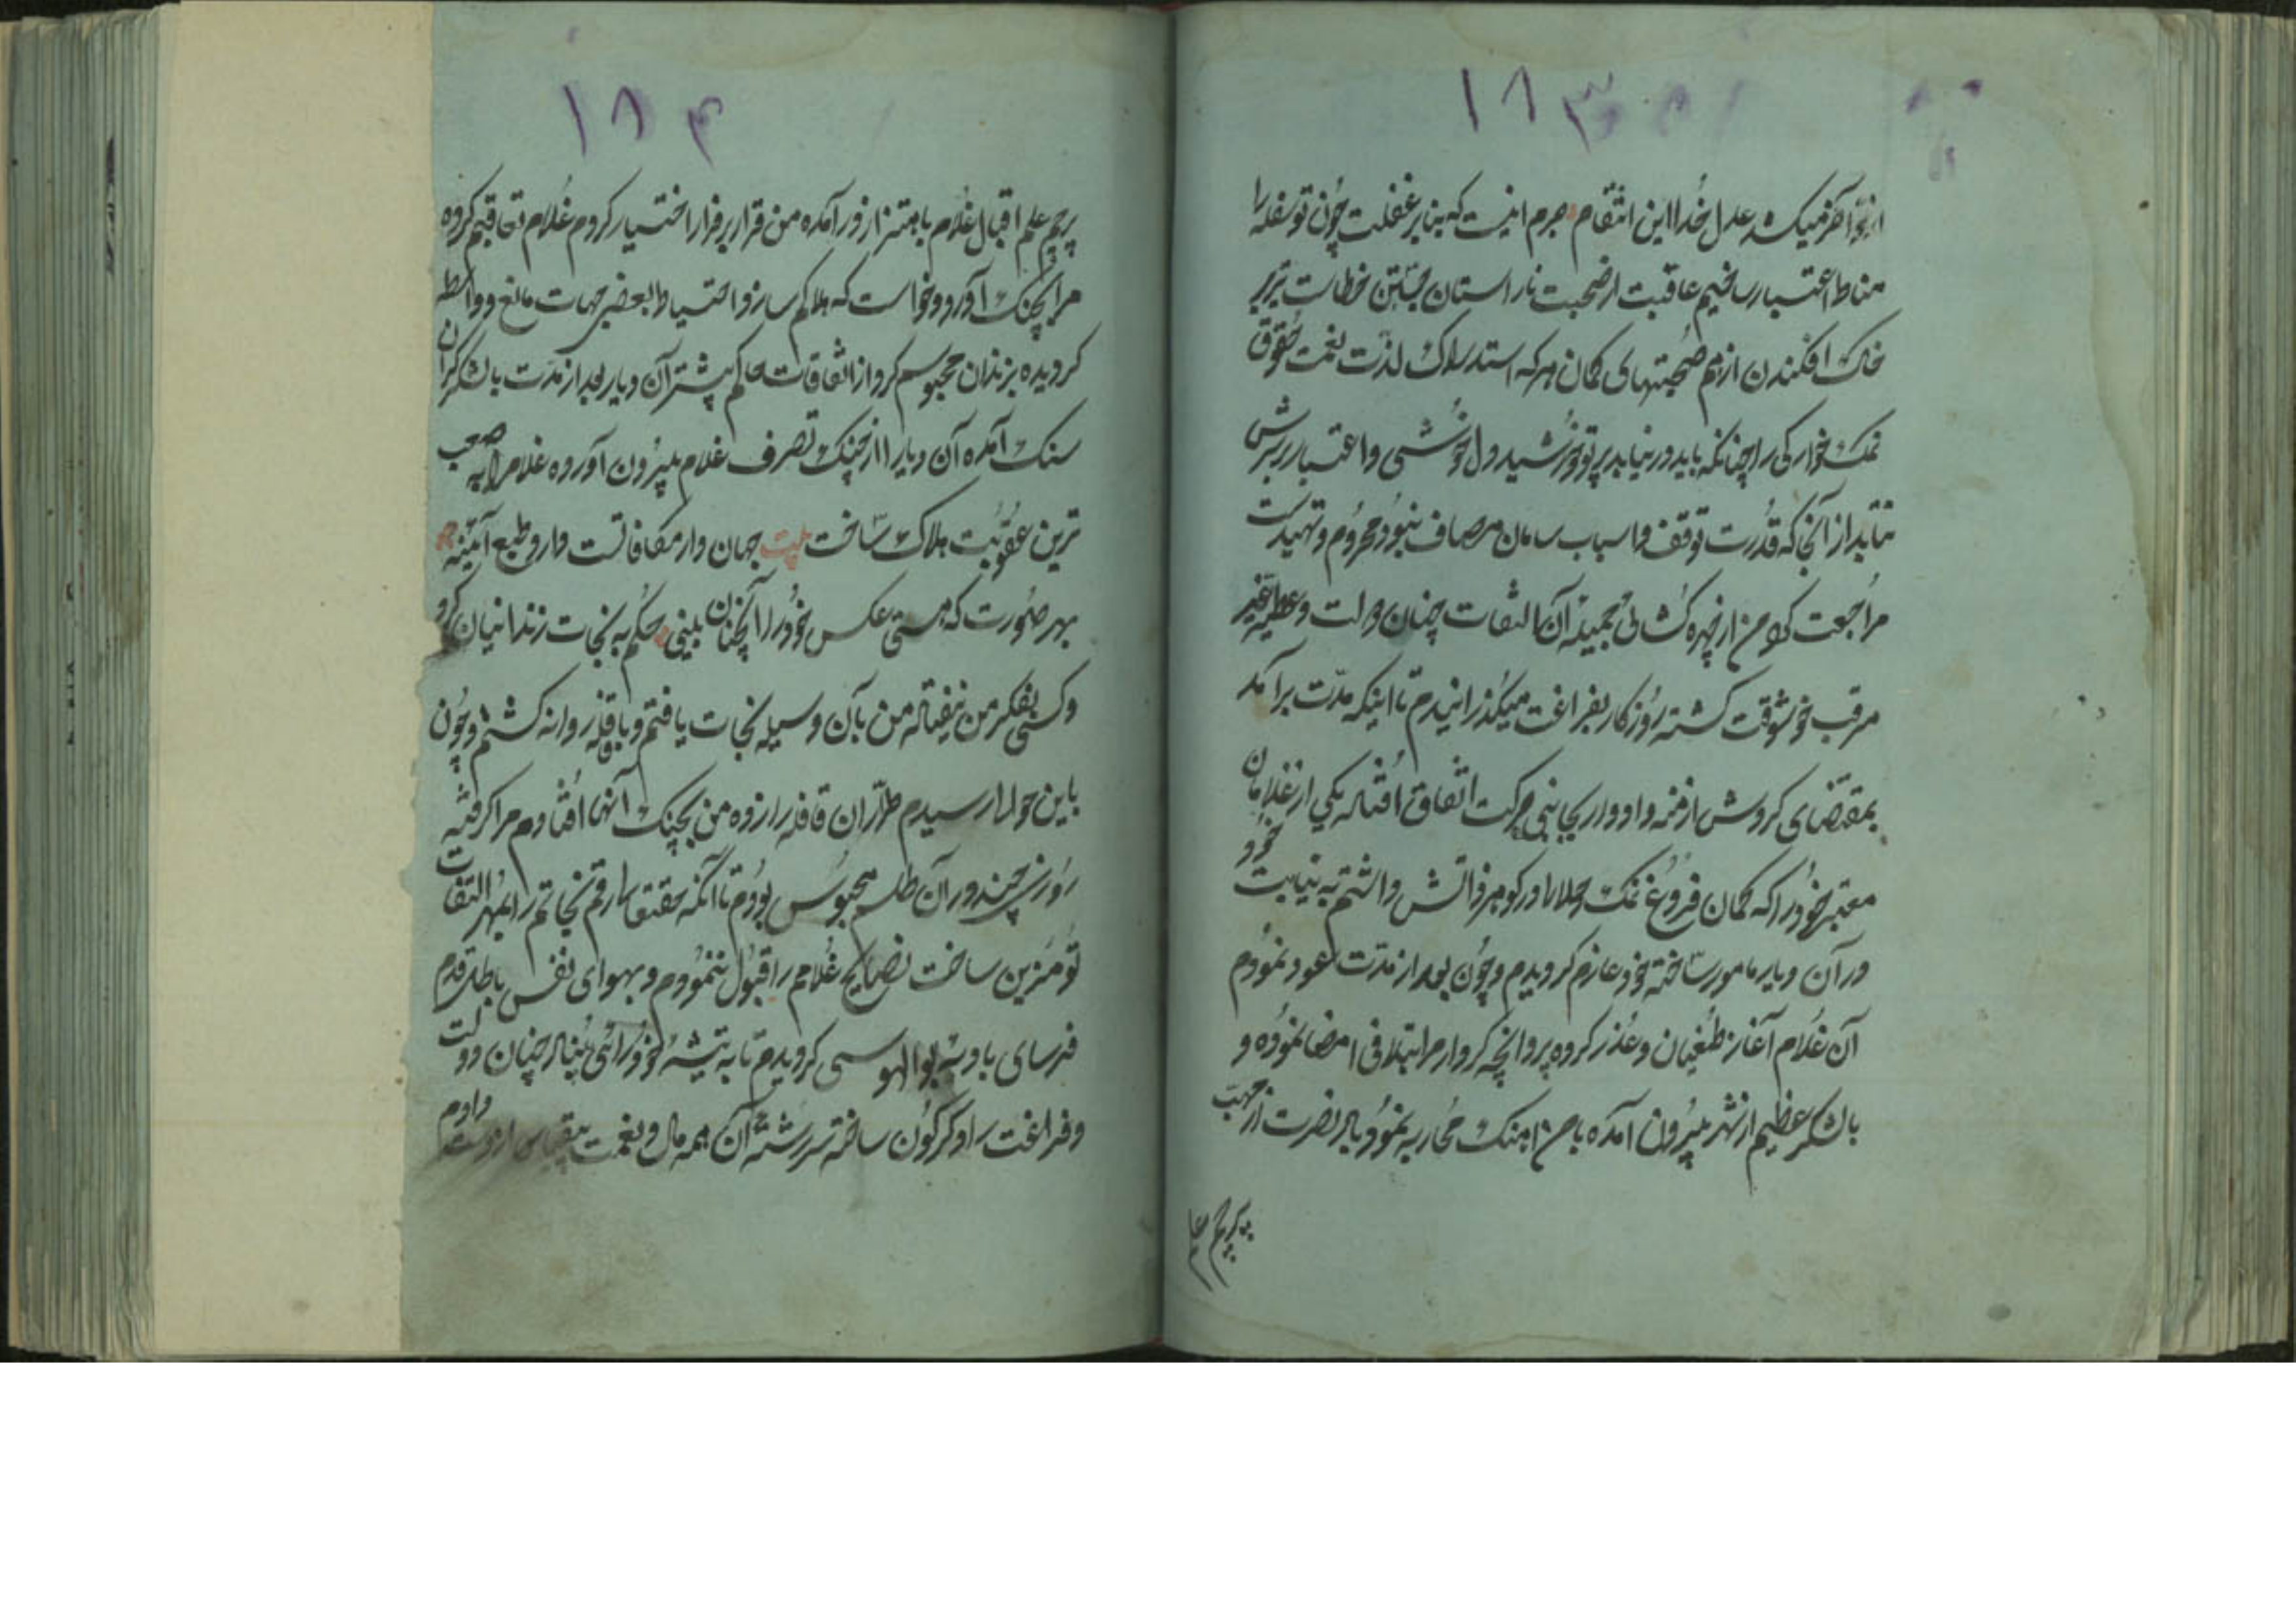 ۱۸۳
از تو آخر میکشد عدل خدا این انتقام جرم اینست که بنابر غفلت چون تو سفله را
مناط اعتبار ساختیم عاقبت از صحبت ناراستان جستن خطاست تیر بر
خاک افکندن از هم صحبتهای کمان هر که استدراک لذت نعمت حقوق
نمک خوارکی را چنانکه باید در نیابد پرتو خورشید دل خوشی و اعتبار بر سرش
نتابد از آنجا که قدرت توقف و اسباب سامان مصاف نبود محروم و تهیدست
مراجعت کرد من از چهره کشائی آن التفات چنان دولت و عطیه غیر
مرقب خوشوقت کشته روزکار بفراغت میکذرانیدم تا اینکه مدت برآمد
بمقتضای کردش ازمنه و ادوار بجانبی حرکت اتفاق افتاد یکی از غلامان
معتبر خود را که کمان فروغ نمک حلالی در کوهر ذاتش داشتم به نیابت خود
در آن دیار مامور ساخته خود عازم کردیدم و چون بعد از مدت عود نمودم
آن غلام آغاز طغیان و غدر کرده پروانچه کردارم را بتلافی امضا نموده و
بالشکر عظیم از شهر بیرون آمده با من آهنک محاربه نمود و باد نصرت از مهب
پرچم علم
۱۸۴
پرچم علم اقبال غلام باهتزاز در آمده من قرار بر فرار اختیار کردم غلام تعاقبم کرده
مرا بچنک آورد و خواست که هلاکم سازد احتیاط بعضی جهات مانع و واسطه
کردیده بزندان محبوسم کرد از اتفاقات حاکم پیشتر آن دیار بعد از مدت بالشکر کران
سنک آمده آن دیار را از چنک تصرف غلام بیرون آورده غلام را به صعب
ترین عقوبت هلاک ساخت بیت جهان دار مکافاتست دارد طبع آئینه
بهر صورت که هستی عکس خود را آنچنان بینی حکم به نجات زندانیان کرد
و کسی بفکر من نیفتاد من بآن وسیله نجات یافتم و با قافله روانه کشتم و چون
باین حوالی رسیدم طراران قافله را زده من بچنک آنها افتادم مرا کرفته
روزی چند در آن طلسم محبوس بودم تا آنکه حقتعالی رقم نجاتم را بمهر التفات
تو مزین ساخت نصایح غلامم را قبول ننمودم و بهوای نفس باطل قدم
فرسای بادیه بوالهوسی کردیدم تا به تیشه خودرائی بنیاد چنان دولت
و فراغت را دکرکون ساخته سررشته آن همه مال و نعمت بیقیاس از دست دادم